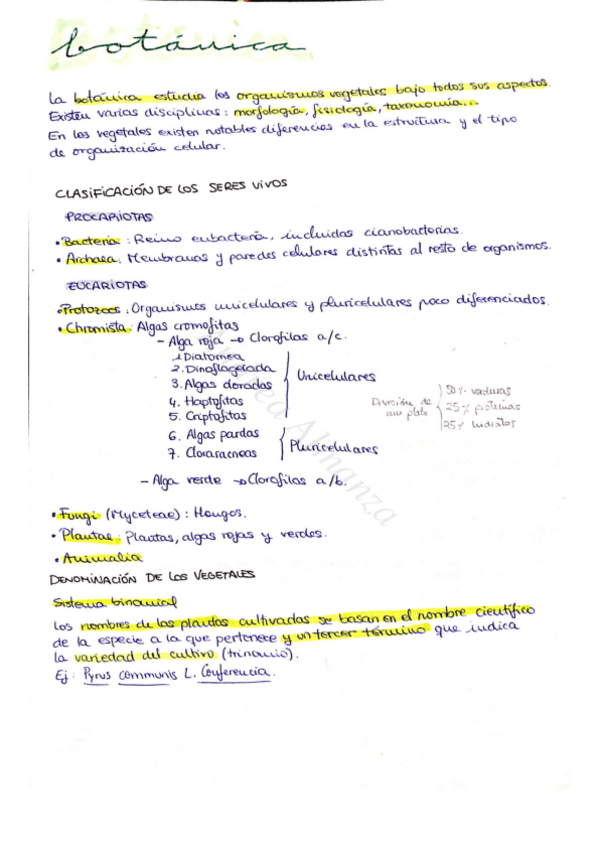 botánica
La botánica estudia los organismos vegetales bajo todos sus aspectos.
Existen varias disciplinas: morfología, fisiología, taxonomía...
En los vegetales existen notables diferencias en la estructura y el tipo
de organización celular.
CLASIFICACIÓN DE LOS SERES VIVOS
PROCARIOTAS
• Bacteria: Reino eubacteria, incluidas cianobacterias.
• Archaea: Membranas y paredes celulares distintas al resto de organismos.
EUCARIOTAS
• Protozoos: Organismos unicelulares y pluricelulares poco diferenciados.
• Chromista: Algas cromofitas
- Alga roja → Clorofilas a/c.
1. Diatomea
2. Dinoflagelada
3. Algas doradas
4. Haptofitas
5. Criptofitas
Unicelulares
6. Algas pardas
7. Cloraracneas
Pluricelulares
División de un plato
50% verduras
25% proteínas
25% hidratos
- Alga verde → Clorofilas a/b.
• Fungi (Myceteae): Hongos.
• Plantae: Plantas, algas rojas y verdes.
• Animalia
DENOMINACIÓN DE LOS VEGETALES
Sistema binomial
Los nombres de las plantas cultivadas se basan en el nombre científico
de la especie a la que pertenece y un tercer término que indica
la variedad del cultivo (trinomio).
Ej: Pyrus communis L. Conferencia.
Andrea Almanza